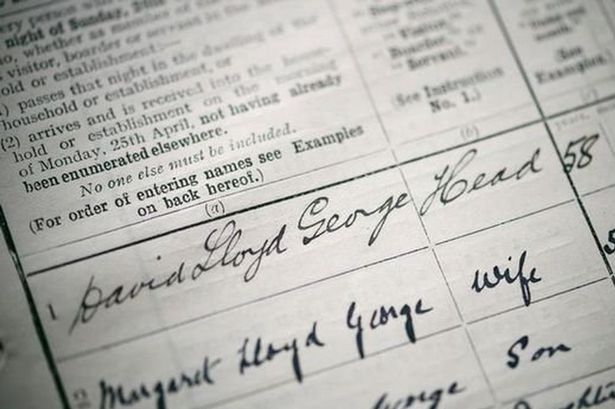 night of Sunday,
, whether as member of the
visitor, boarder or servant in the
old or establishment:
passes that night in the dwelling of the
household or establishment, or
(2) arrives and is received into the house-
hold or establishment on the morning
of Monday, 25th April, not having already
been enumerated elsewhere.
No one else must be included.
(For order of entering names see Examples
on back hereof.)
(a)
Visitor,
Boarder,
Servant."
(See Instruction
No. 1.)
(b)
(See
Examples
1 David Lloyd George Head 58
2 Margaret Lloyd George Wife
George Son